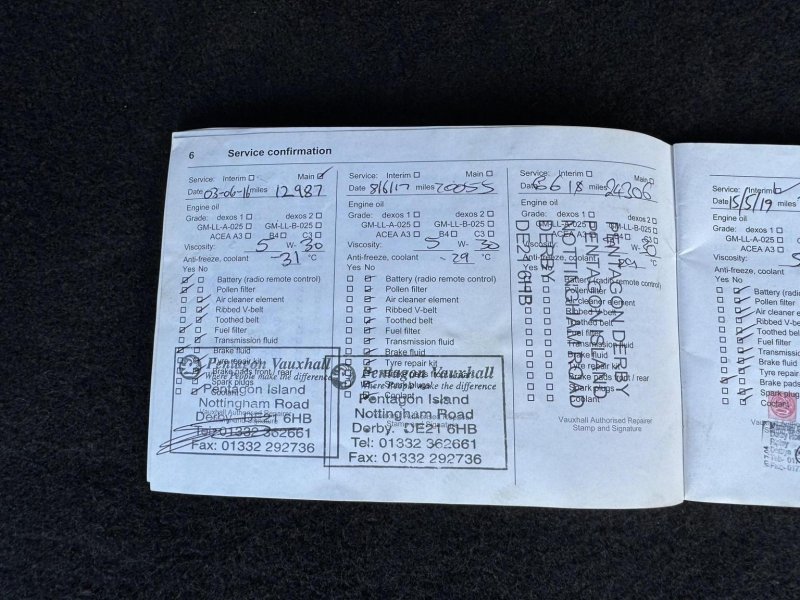 6 Service confirmation
Service: Interim Main
Date 03-06-16 miles 12987
Engine oil
Grade: dexos 1 dexos 2
GM-LL-A-025 GM-LL-B-025
ACEA A3 B4 C3
Viscosity: 5 W- 30
Anti-freeze, coolant -31 °C
Yes No
Battery (radio remote control)
Pollen filter
Air cleaner element
Ribbed V-belt
Toothed belt
Fuel filter
Transmission fluid
Brake fluid
Tyre repair kit
Brake pads front / rear
Spark plugs
Coolant
Vauxhall Authorised Repairer
Pentagon Vauxhall
Where People make the difference
Pentagon Island
Nottingham Road
Derby. DE21 6HB
Tel: 01332 362661
Fax: 01332 292736
Service: Interim Main
Date 8/6/17 miles 20055
Engine oil
Grade: dexos 1 dexos 2
GM-LL-A-025 GM-LL-B-025
ACEA A3 B4 C3
Viscosity: 5 W- 30
Anti-freeze, coolant -29 °C
Yes No
Battery (radio remote control)
Pollen filter
Air cleaner element
Ribbed V-belt
Toothed belt
Fuel filter
Transmission fluid
Brake fluid
Tyre repair kit
Spark plugs
Coolant
Pentagon Vauxhall
Where People make the difference
Pentagon Island
Nottingham Road
Derby. DE21 6HB
Tel: 01332 362661
Fax: 01332 292736
Service: Interim Main
Date 6 6 18 miles 24206
Engine oil
Grade: dexos 1 dexos 2
GM-LL-A-025 GM-LL-B-025
ACEA A3
Viscosity:
Anti-freeze, coolant °C
Yes No
Battery (radio remote control)
Pollen filter
Air cleaner element
Ribbed V-belt
Toothed belt
Fuel filter
Transmission fluid
Brake fluid
Tyre repair kit
Brake pads front / rear
Spark plugs
Coolant
Vauxhall Authorised Repairer
Stamp and Signature
DE21 6HB
Service: Interim
Date 15/5/19 miles
Engine oil
Grade: dexos 1
GM-LL-A-025
ACEA A3
Viscosity:
Anti-freeze, coolant
Yes No
Battery
Pollen filter
Air cleaner
Ribbed V-b
Toothed be
Fuel filter
Transmiss
Brake fluid
Tyre repair
Brake pads
Spark plug
Coolant